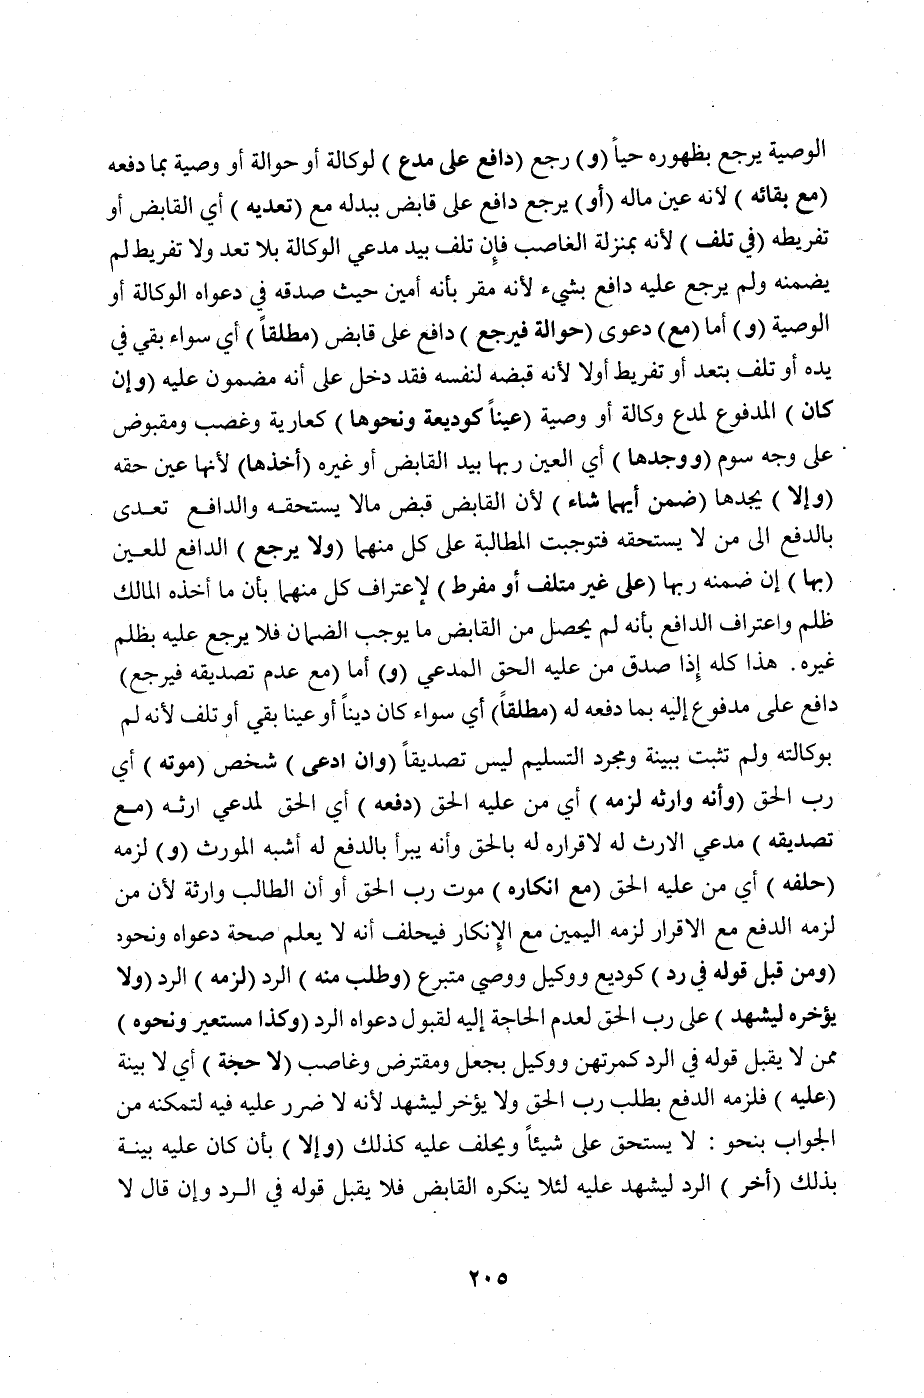 الوصية يرجع بظهوره حياً (و) رجع (دافع على مدع) لوكالة أو حوالة أو وصية بما دفعه
(مع بقائه) لأنه عين ماله (أو) يرجع دافع على قابض ببدله مع (تعديه) أي القابض أو
تفريطه (في تلف) لأنه بمنزلة الغاصب فإن تلف بيد مدعي الوكالة بلا تعد ولا تفريط لم
يضمنه ولم يرجع عليه دافع بشيء لأنه مقر بأنه أمين حيث صدقه في دعواه الوكالة أو
الوصية (و) أما (مع) دعوى (حوالة فيرجع) دافع على قابض (مطلقاً) أي سواء بقي في
يده أو تلف بتعد أو تفريط أولا لأنه قبضه لنفسه فقد دخل على أنه مضمون عليه (وإن
كان) المدفوع لمدع وكالة أو وصية (عيناً كوديعة ونحوها) كعارية وغصب ومقبوض
على وجه سوم (ووجدها) أي العين ربها بيد القابض أو غيره (أخذها) لأنها عين حقه
(وإلا) يجدها (ضمن أيهما شاء) لأن القابض قبض مالا يستحقه والدافع تعدى
بالدفع الى من لا يستحقه فتوجبت المطالبة على كل منهما (ولا يرجع) الدافع للعين
(بها) إن ضمنه ربها (على غير متلف أو مفرط) لإعتراف كل منهما بأن ما أخذه المالك
ظلم واعتراف الدافع بأنه لم يحصل من القابض ما يوجب الضمان فلا يرجع عليه بظلم
غيره. هذا كله إذا صدق من عليه الحق المدعي (و) أما (مع عدم تصديقه فيرجع)
دافع على مدفوع إليه بما دفعه له (مطلقاً) أي سواء كان ديناً أو عينا بقي أو تلف لأنه لم
بوكالته ولم تثبت ببينة ومجرد التسليم ليس تصديقاً (وان ادعى) شخص (موته) أي
رب الحق (وأنه وارثه لزمه) أي من عليه الحق (دفعه) أي الحق لمدعي ارثه (مع
تصديقه) مدعي الارث له لاقراره له بالحق وأنه يبرأ بالدفع له أشبه المورث (و) لزمه
(حلفه) أي من عليه الحق (مع انكاره) موت رب الحق أو أن الطالب وارثة لأن من
لزمه الدفع مع الاقرار لزمه اليمين مع الإنكار فيحلف أنه لا يعلم صحة دعواه ونحوه
(ومن قبل قوله في رد) كوديع ووكيل ووصي متبرع (وطلب منه) الرد (لزمه) الرد (ولا
يؤخره ليشهد) على رب الحق لعدم الحاجة إليه لقبول دعواه الرد (وكذا مستعير ونحوه)
ممن لا يقبل قوله في الرد كمرتهن ووكيل بجعل ومقترض وغاصب (لا حجة) أي لا بينة
(عليه) فلزمه الدفع بطلب رب الحق ولا يؤخر ليشهد لأنه لا ضرر عليه فيه لتمكنه من
الجواب بنحو : لا يستحق على شيئاً ويحلف عليه كذلك (وإلا) بأن كان عليه بينة
بذلك (أخر) الرد ليشهد عليه لئلا ينكره القابض فلا يقبل قوله في الرد وإن قال لا
٢٠٥